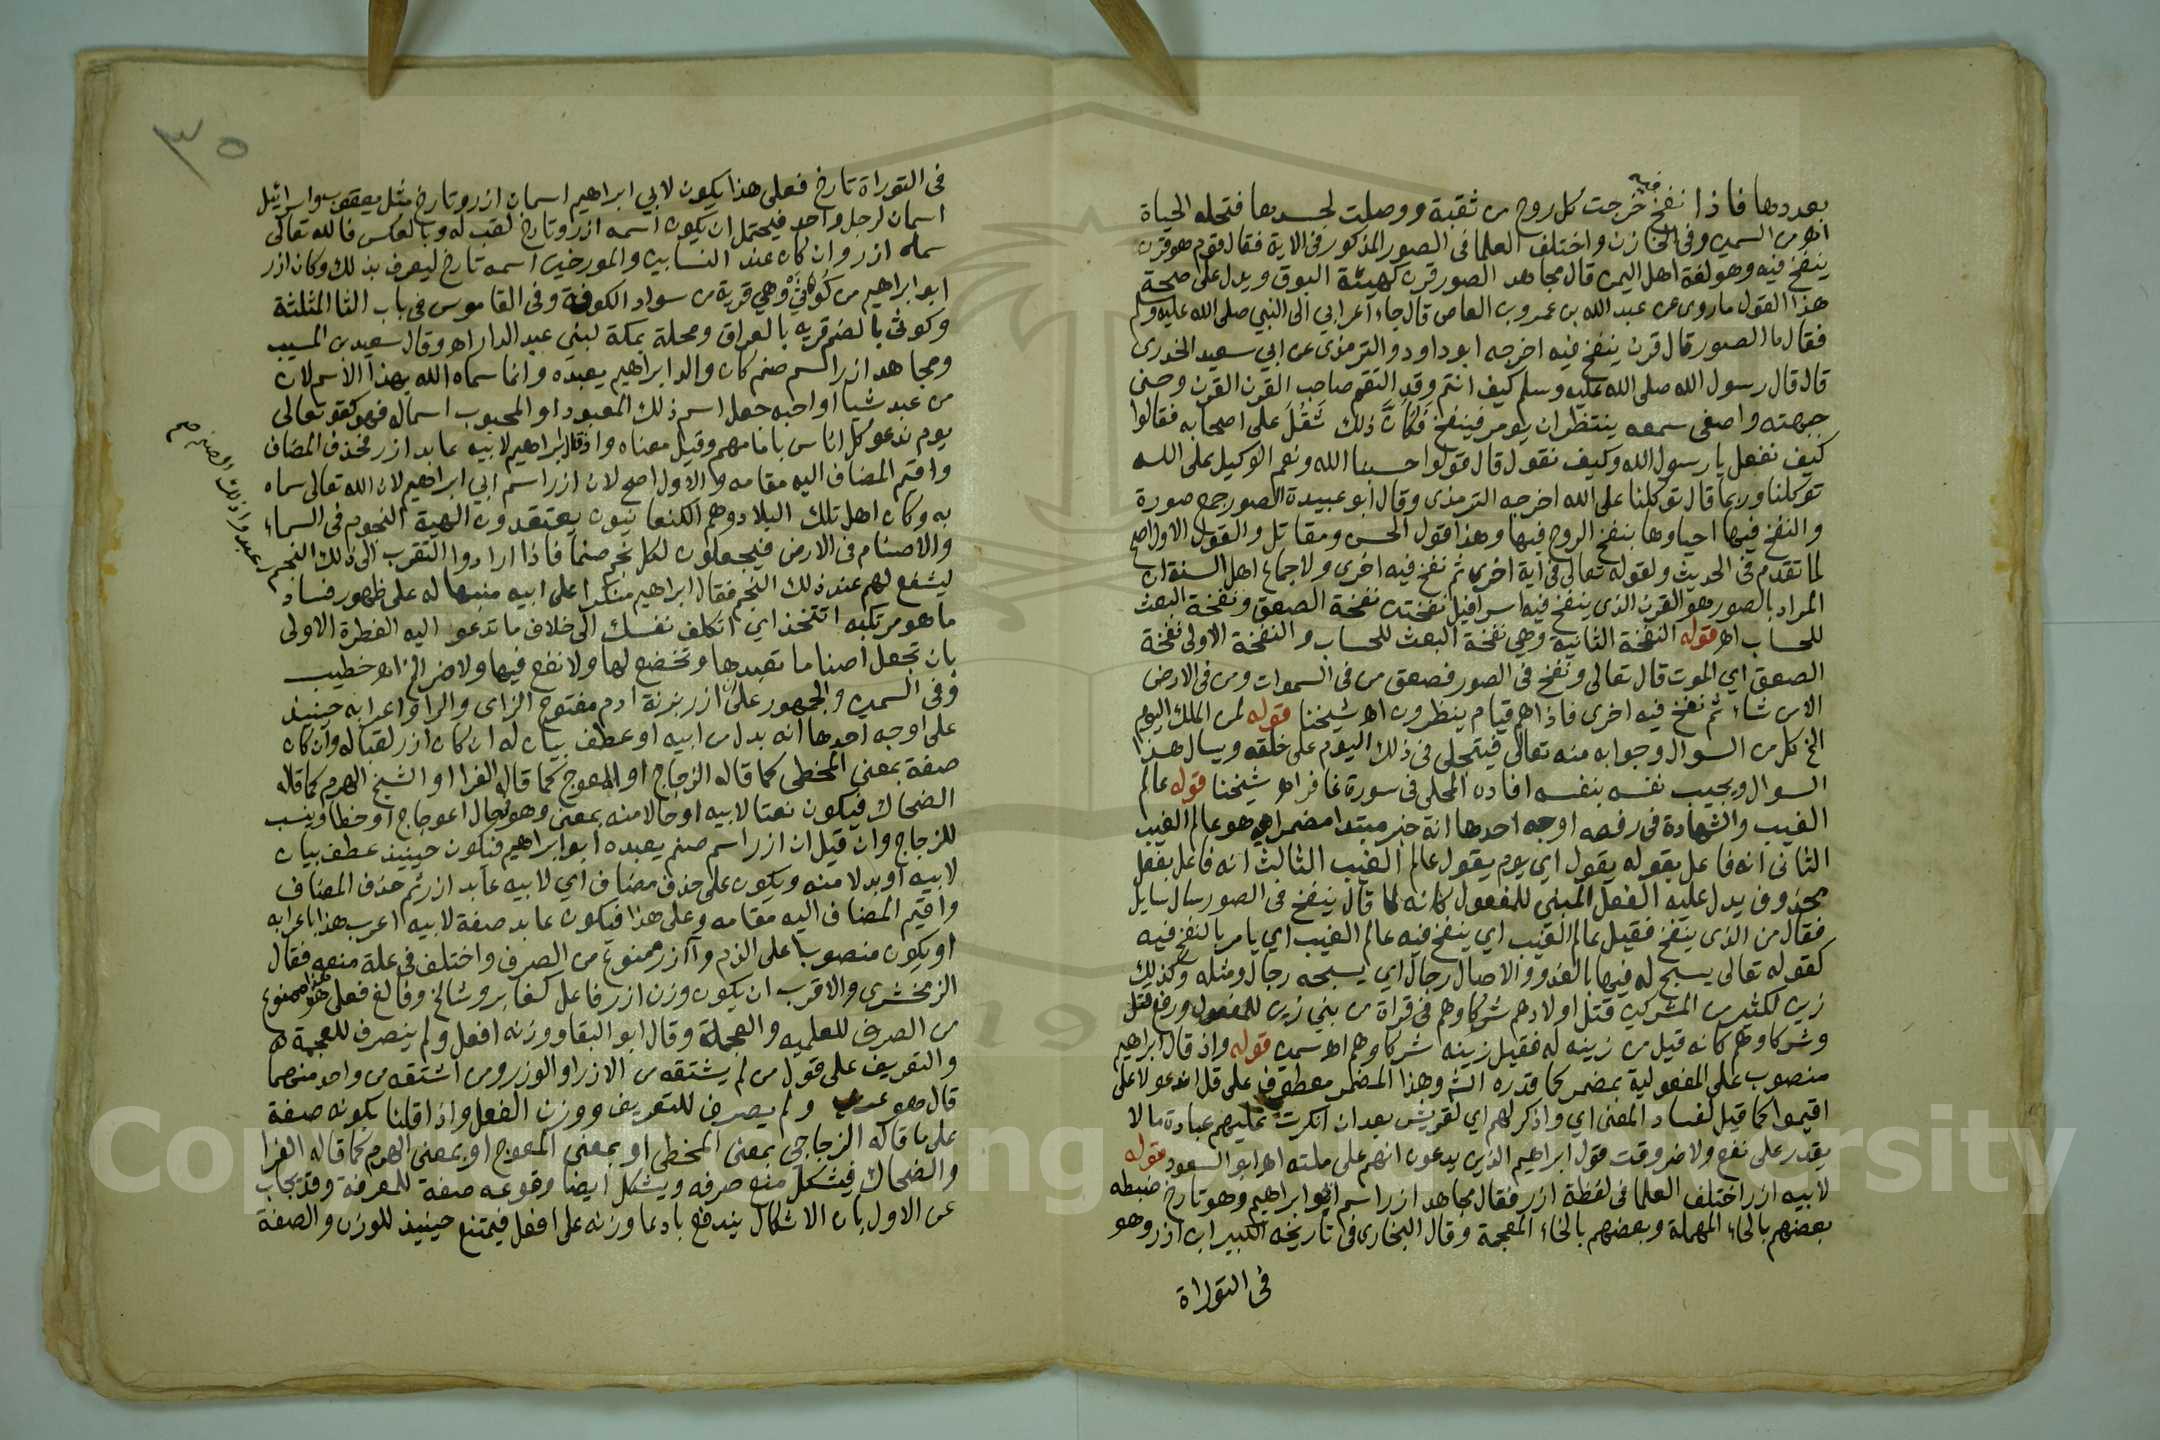 بعددها فاذا نفخ فيه خرجت كل روح من ثقبة ووصلت لجسدها فتحله الحياة
اهـ من السمين وفى الخازن واختلف العلما فى الصور المذكور فى الاية فقال قوم هو قرن
ينفخ فيه وهو لغة اهل اليمن قال مجاهد الصور قرن كهيئة البوق ويدل على صحة
هذا القول ما روى عن عبد الله بن عمرو بن العاص قال جاء اعرابي الى النبي صلى الله عليه وسلم
فقال ما الصور قال قرن ينفخ فيه اخرجه ابو داود والترمذى عن ابي سعيد الخدرى
قال قال رسول الله صلى الله عليه وسلم كيف انتم وقد التقم صاحب القرن القرن وحنى
جبهته واصغى سمعه ينتظر ان يومر فينفخ فكان ذلك ثقل على اصحابه فقالوا
كيف نفعل يا رسول الله وكيف نقول قال قولوا حسبنا الله ونعم الوكيل على الله
توكلنا وربما قال توكلنا على الله اخرجه الترمذى وقال ابو عبيدة الصور جمع صورة
والنفخ فيها احياوها بنفخ الروح فيها وهذا قول الحسن ومقاتل والقول الاول اصح
لما تقدم فى الحديث ولقوله تعالى فى اية اخرى ثم نفخ فيه اخرى ولاجماع اهل السنة ان
المراد بالصور هو القرن الذى ينفخ فيه اسرافيل نفختين نفخة الصعق ونفخة البعث
للحساب اهـ قوله النفخة الثانية وهي نفخة البعث للحساب والنفخة الاولى نفخة
الصعق اي الموت قال تعالى ونفخ فى الصور فصعق من فى السموات ومن فى الارض
الا من شاء ثم نفخ فيه اخرى فاذا هم قيام ينظرون اهـ شيخنا قوله لمن الملك اليوم
الخ كل من السوال وجوابه منه تعالى فيتجلى فى ذلك اليوم على خلقه ويسال هذا
السوال ويجيب نفسه بنفسه افاده المحلى فى سورة غافر اهـ شيخنا قوله عالم
الغيب والشهادة فى رفعه اوجه احدها انه خبر مبتدا مضمر اي هو عالم الغيب
الثانى انه فاعل بقوله يقول اي يوم يقول عالم الغيب الثالث انه فاعل بفعل
محذوف يدل عليه الفعل المبني للمفعول كانه لما قال ينفخ فى الصور سال سايل
فقال من الذى ينفخ فقيل عالم الغيب اي ينفخ فيه عالم الغيب اي يامر بالنفخ فيه
كقوله تعالى يسبح له فيها بالغدو والاصال رجال اي يسبحه رجال ومثله وكذلك
زين لكثير من المشركين قتل اولادهم شركاوهم فى قراة من بنى زين للمفعول ورفع قتل
وشركاوهم كانه قيل من زينه له فقيل زينه شركاوهم اهـ سمين قوله واذ قال ابراهيم
منصوب على المفعولية بمضمر كما قدره الش وهذا المضمر معطوف على قل اندعو لا على
اقيموا كما قيل لفساد المعنى اي واذكر لهم اي لقريش بعد ان انكرت عليهم عبادة مالا
يقدر على نفع ولا ضر وقت قول ابراهيم الذين يدعون انهم على ملته اهـ ابو السعود قوله
لابيه ازر اختلف العلما فى لفظة ازر فقال مجاهد ازر اسم ابي ابراهيم وهو تارخ ضبطه
بعضهم بالحاء المهملة وبعضهم بالخاء المعجمة وقال البخارى فى تاريخه الكبير ابن ازر وهو
فى التوراة
٣٥
فى التوراة تارخ فعلى هذا يكون لابي ابراهيم اسمان ازر وتارخ مثل يعقوب واسرائيل
اسمان لرجل واحد فيحتمل ان يكون اسمه ازر وتارخ لقب له وبالعكس فالله تعالى
سماه ازر وان كان عند النسابين والمورخين اسمه تارخ ليعرف بذلك وكان ازر
ابو ابراهيم من كوثى وهي قرية من سواد الكوفة وفى القاموس فى باب الثا المثلثة
وكوثى بالضم قرية بالعراق ومحلة بمكة لبنى عبد الدار اهـ وقال سعيد بن المسيب
ومجاهد ازر اسم صنم كان والد ابراهيم يعبده وانما سماه الله بهذا الاسم لان
من عبد شيا او احبه جعل اسم ذلك المعبود او المحبوب اسما له فهو كقوله تعالى
يوم ندعو كل اناس بامامهم وقيل معناه واذ قال ابراهيم لابيه عابد ازر فحذف المضاف
واقيم المضاف اليه مقامه والاول اصح لان ازر اسم ابي ابراهيم لان الله تعالى سماه
به وكان اهل تلك البلاد وهم الكنعانيون يعتقدون الهية النجوم فى السماء
والاصنام فى الارض فيجعلون لكل نجم صنما فاذا ارادوا التقرب الى ذلك النجم
عبدوا ذلك الصنم صح
ليشفع لهم عند ذلك النجم فقال ابراهيم منكرا على ابيه منبها له على ظهور فساد
ما هو مرتكبه اتتخذ اي اتكلف نفسك الى خلاف ما تدعو اليه الفطرة الاولى
بان تجعل اصناما تعبدها وتخضع لها ولا نفع فيها ولا ضر الخ اهـ خطيب
وفى السمين والجمهور على ان ازر بزنة ادم مفتوح الزاى والرا واعرابه حينيذ
على اوجه احدها انه بدل من ابيه او عطف بيان له ان كان ازر لقبا له وان كان
صفة بمعنى المخطى كما قاله الزجاج او المعوج كما قاله الفرا او الشيخ الهرم كما قاله
الضحاك فيكون نعتا لابيه او حالا منه بمعنى وهو فى حال اعوجاج او خطا وينسب
للزجاج وان قيل ان ازر اسم صنم يعبده ابو ابراهيم فيكون حينيذ عطف بيان
لابيه او بدلا منه ويكون على حذف مضاف اي لابيه عابد ازر ثم حذف المضاف
واقيم المضاف اليه مقامه وعلى هذا فيكون عابد صفة لابيه اعرب هذا باعرابه
او يكون منصوبا على الذم وآزر ممنوع من الصرف واختلف فى علة منعه فقال
الزمخشرى والاقرب ان يكون وزن ازر فاعل كعابر وشالخ وفالغ فعلى هذا هو ممنوع
من الصرف للعلمية والعجمة وقال ابو البقا ووزنه افعل ولم ينصرف للعجمة
والتعريف على قول من لم يشتقه من الازر او الوزر ومن اشتقه من واحد منهما
قال هو عربي ولم يصرف للتعريف ووزن الفعل واذا قلنا بكونه صفة
على ما قاله الزجاجي بمعنى المخطى او بمعنى المعوج او بمعنى الهرم كما قاله الفرا
والضحاك فيشكل منع صرفه ويشكل ايضا وقوعه صفة للمعرفة وقد يجاب
عن الاول بان الاشكال يندفع بادعا وزنه على افعل فيمتنع حينيذ للوزن والصفة